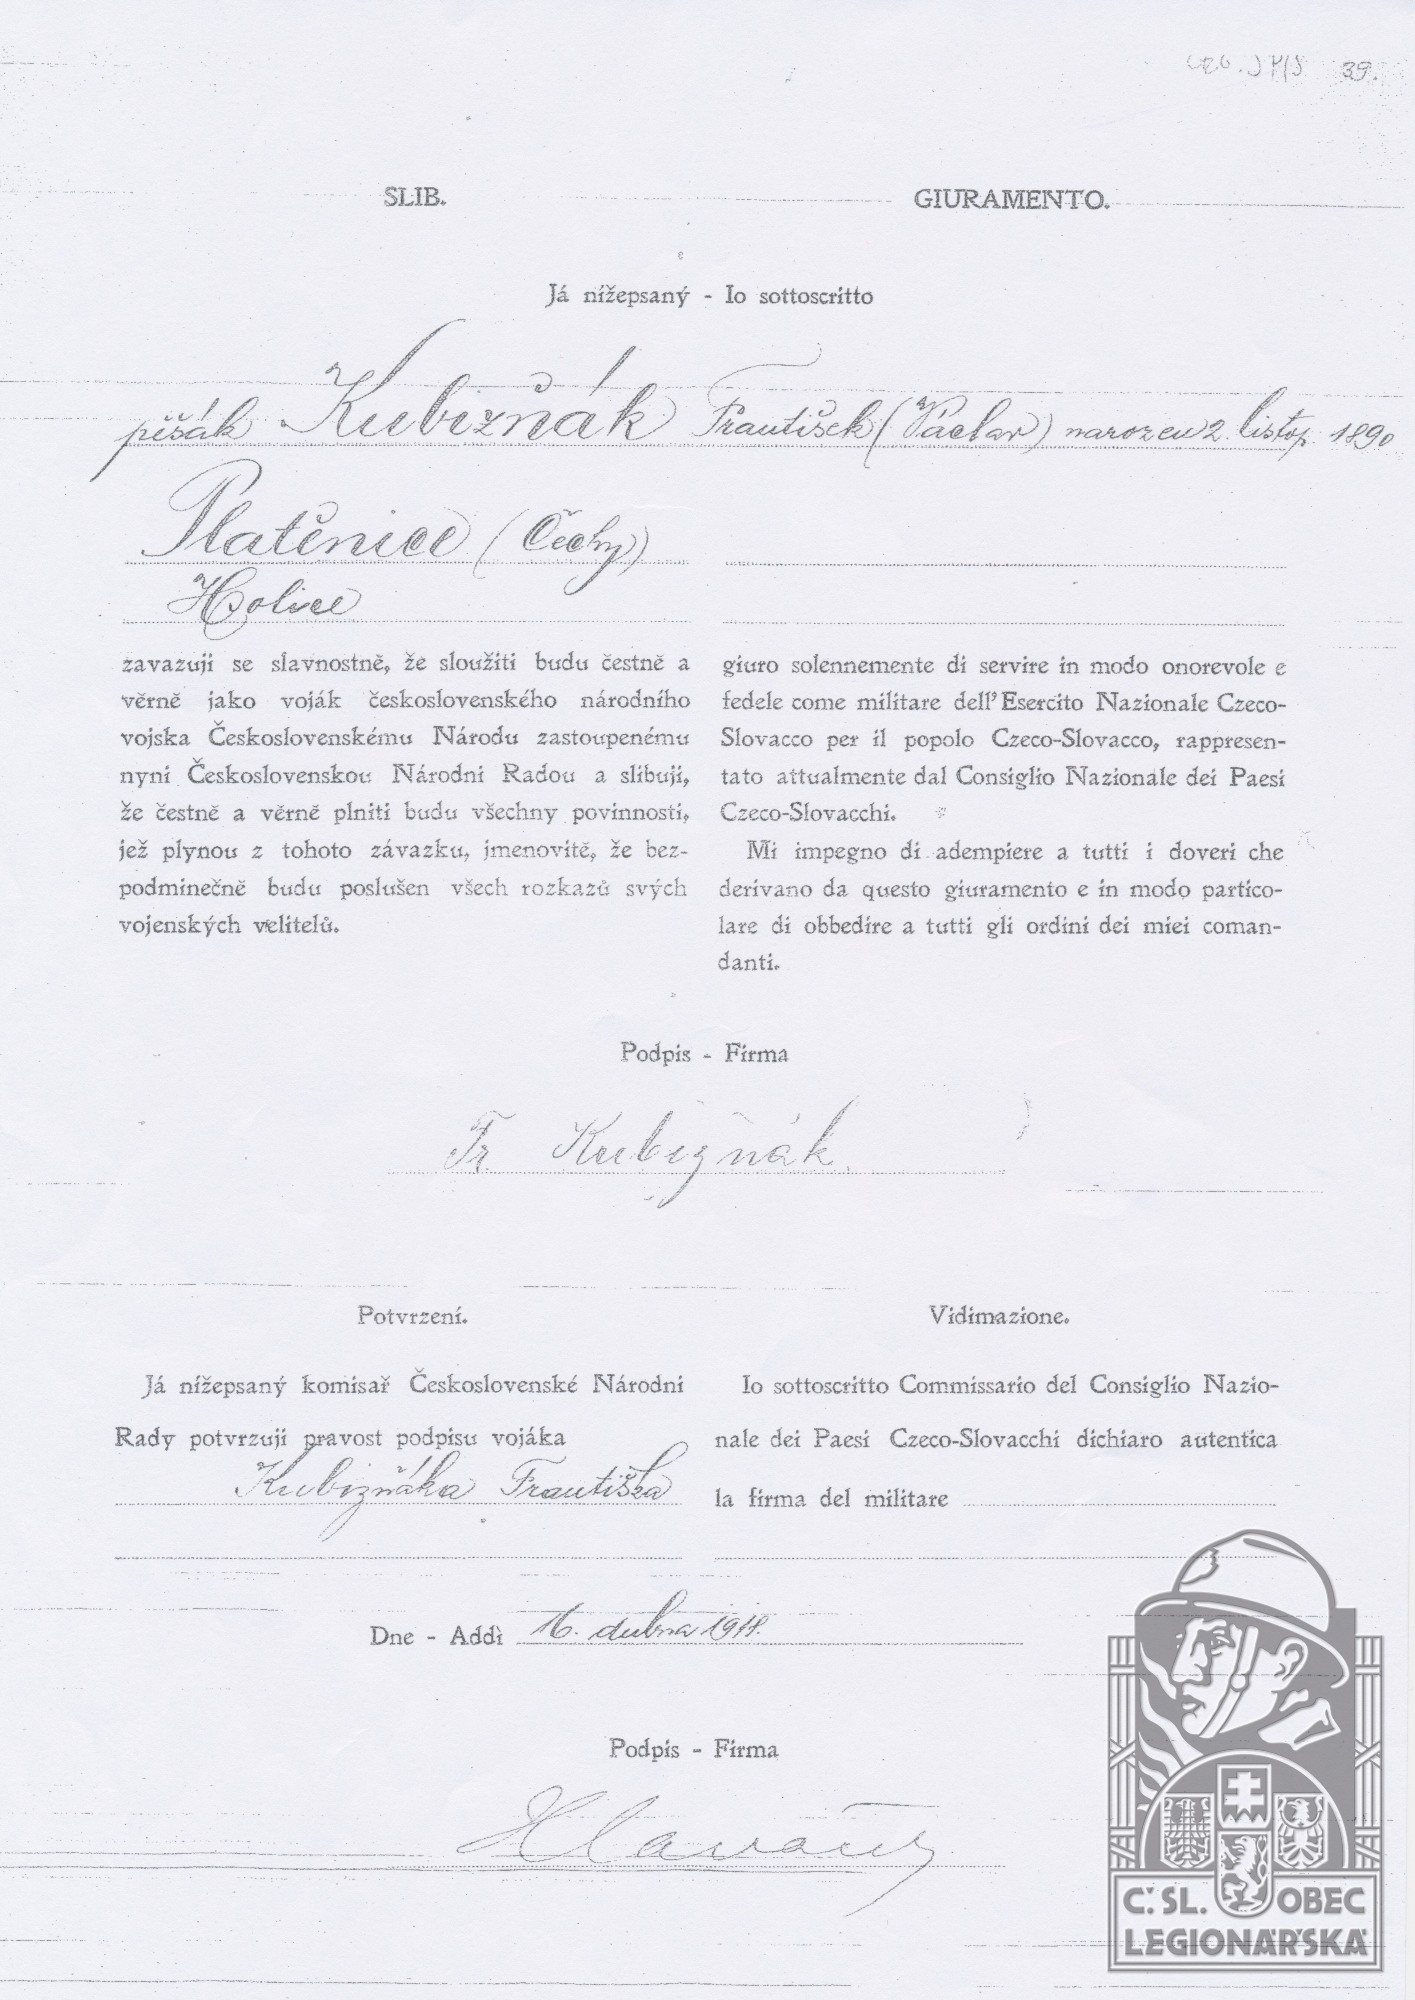 39.
SLIB.
GIURAMENTO.
Já nížepsaný - Io sottoscritto
pěšák Kubizňák František (Václav) narozen 2. listop. 1890
Platěnice (Čechy)
Holice
zavazuji se slavnostně, že sloužiti budu čestně a
věrně jako voják československého národního
vojska Československému Národu zastoupenému
nyní Československou Národní Radou a slibuji,
že čestně a věrně plniti budu všechny povinnosti,
jež plynou z tohoto závazku, jmenovitě, že bez-
podmínečně budu poslušen všech rozkazů svých
vojenských velitelů.
giuro solennemente di servire in modo onorevole e
fedele come militare dell' Esercito Nazionale Czeco-
Slovacco per il popolo Czeco-Slovacco, rappresen-
tato attualmente dal Consiglio Nazionale dei Paesi
Czeco-Slovacchi.
Mi impegno di adempiere a tutti i doveri che
derivano da questo giuramento e in modo partico-
lare di obbedire a tutti gli ordini dei miei coman-
danti.
Podpis - Firma
Fr Kubizňák
Potvrzení.
Já nížepsaný komisař Československé Národní
Rady potvrzuji pravost podpisu vojáka
Kubizňáka Františka
Vidimazione.
Io sottoscritto Commissario del Consiglio Nazio-
nale dei Paesi Czeco-Slovacchi dichiaro autentica
la firma del militare
Dne - Addì 16. dubna 1918.
Podpis - Firma
Č. SL. OBEC
LEGIONÁŘSKÁ